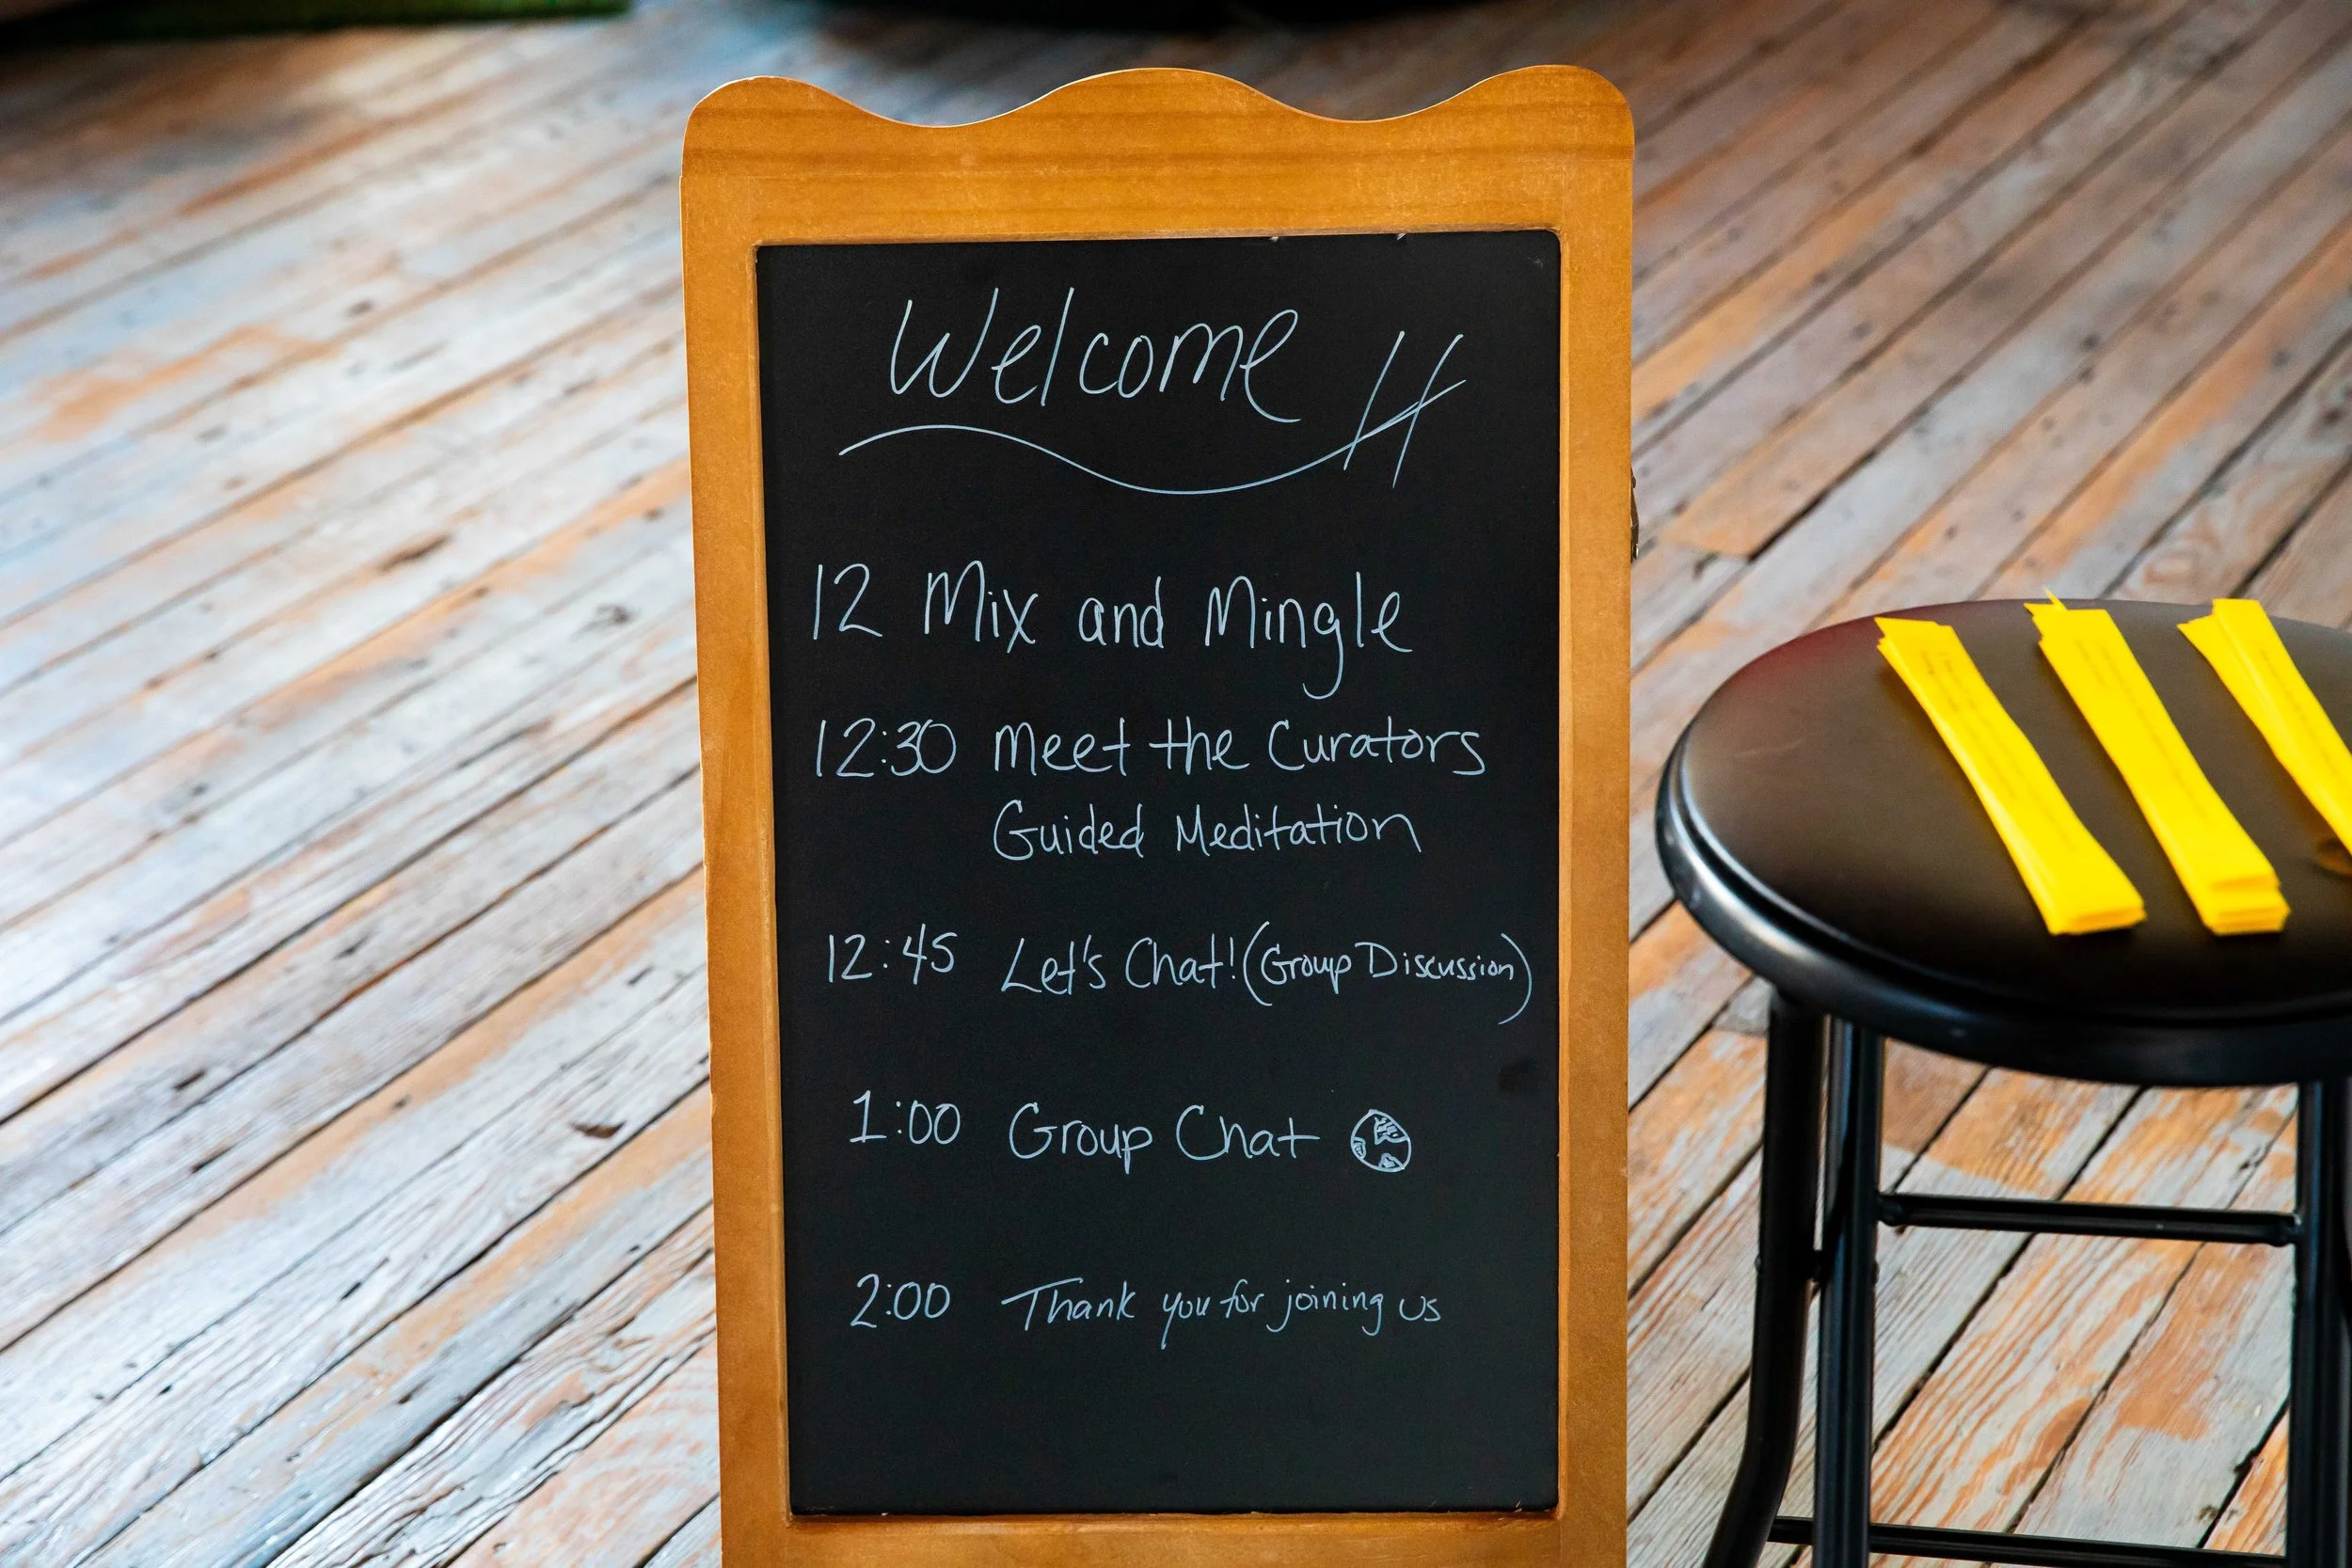 Welcome
12 Mix and Mingle
12:30 Meet the Curators
Guided Meditation
12:45 Let's Chat! (Group Discussion)
1:00 Group Chat
2:00 Thank you for joining us